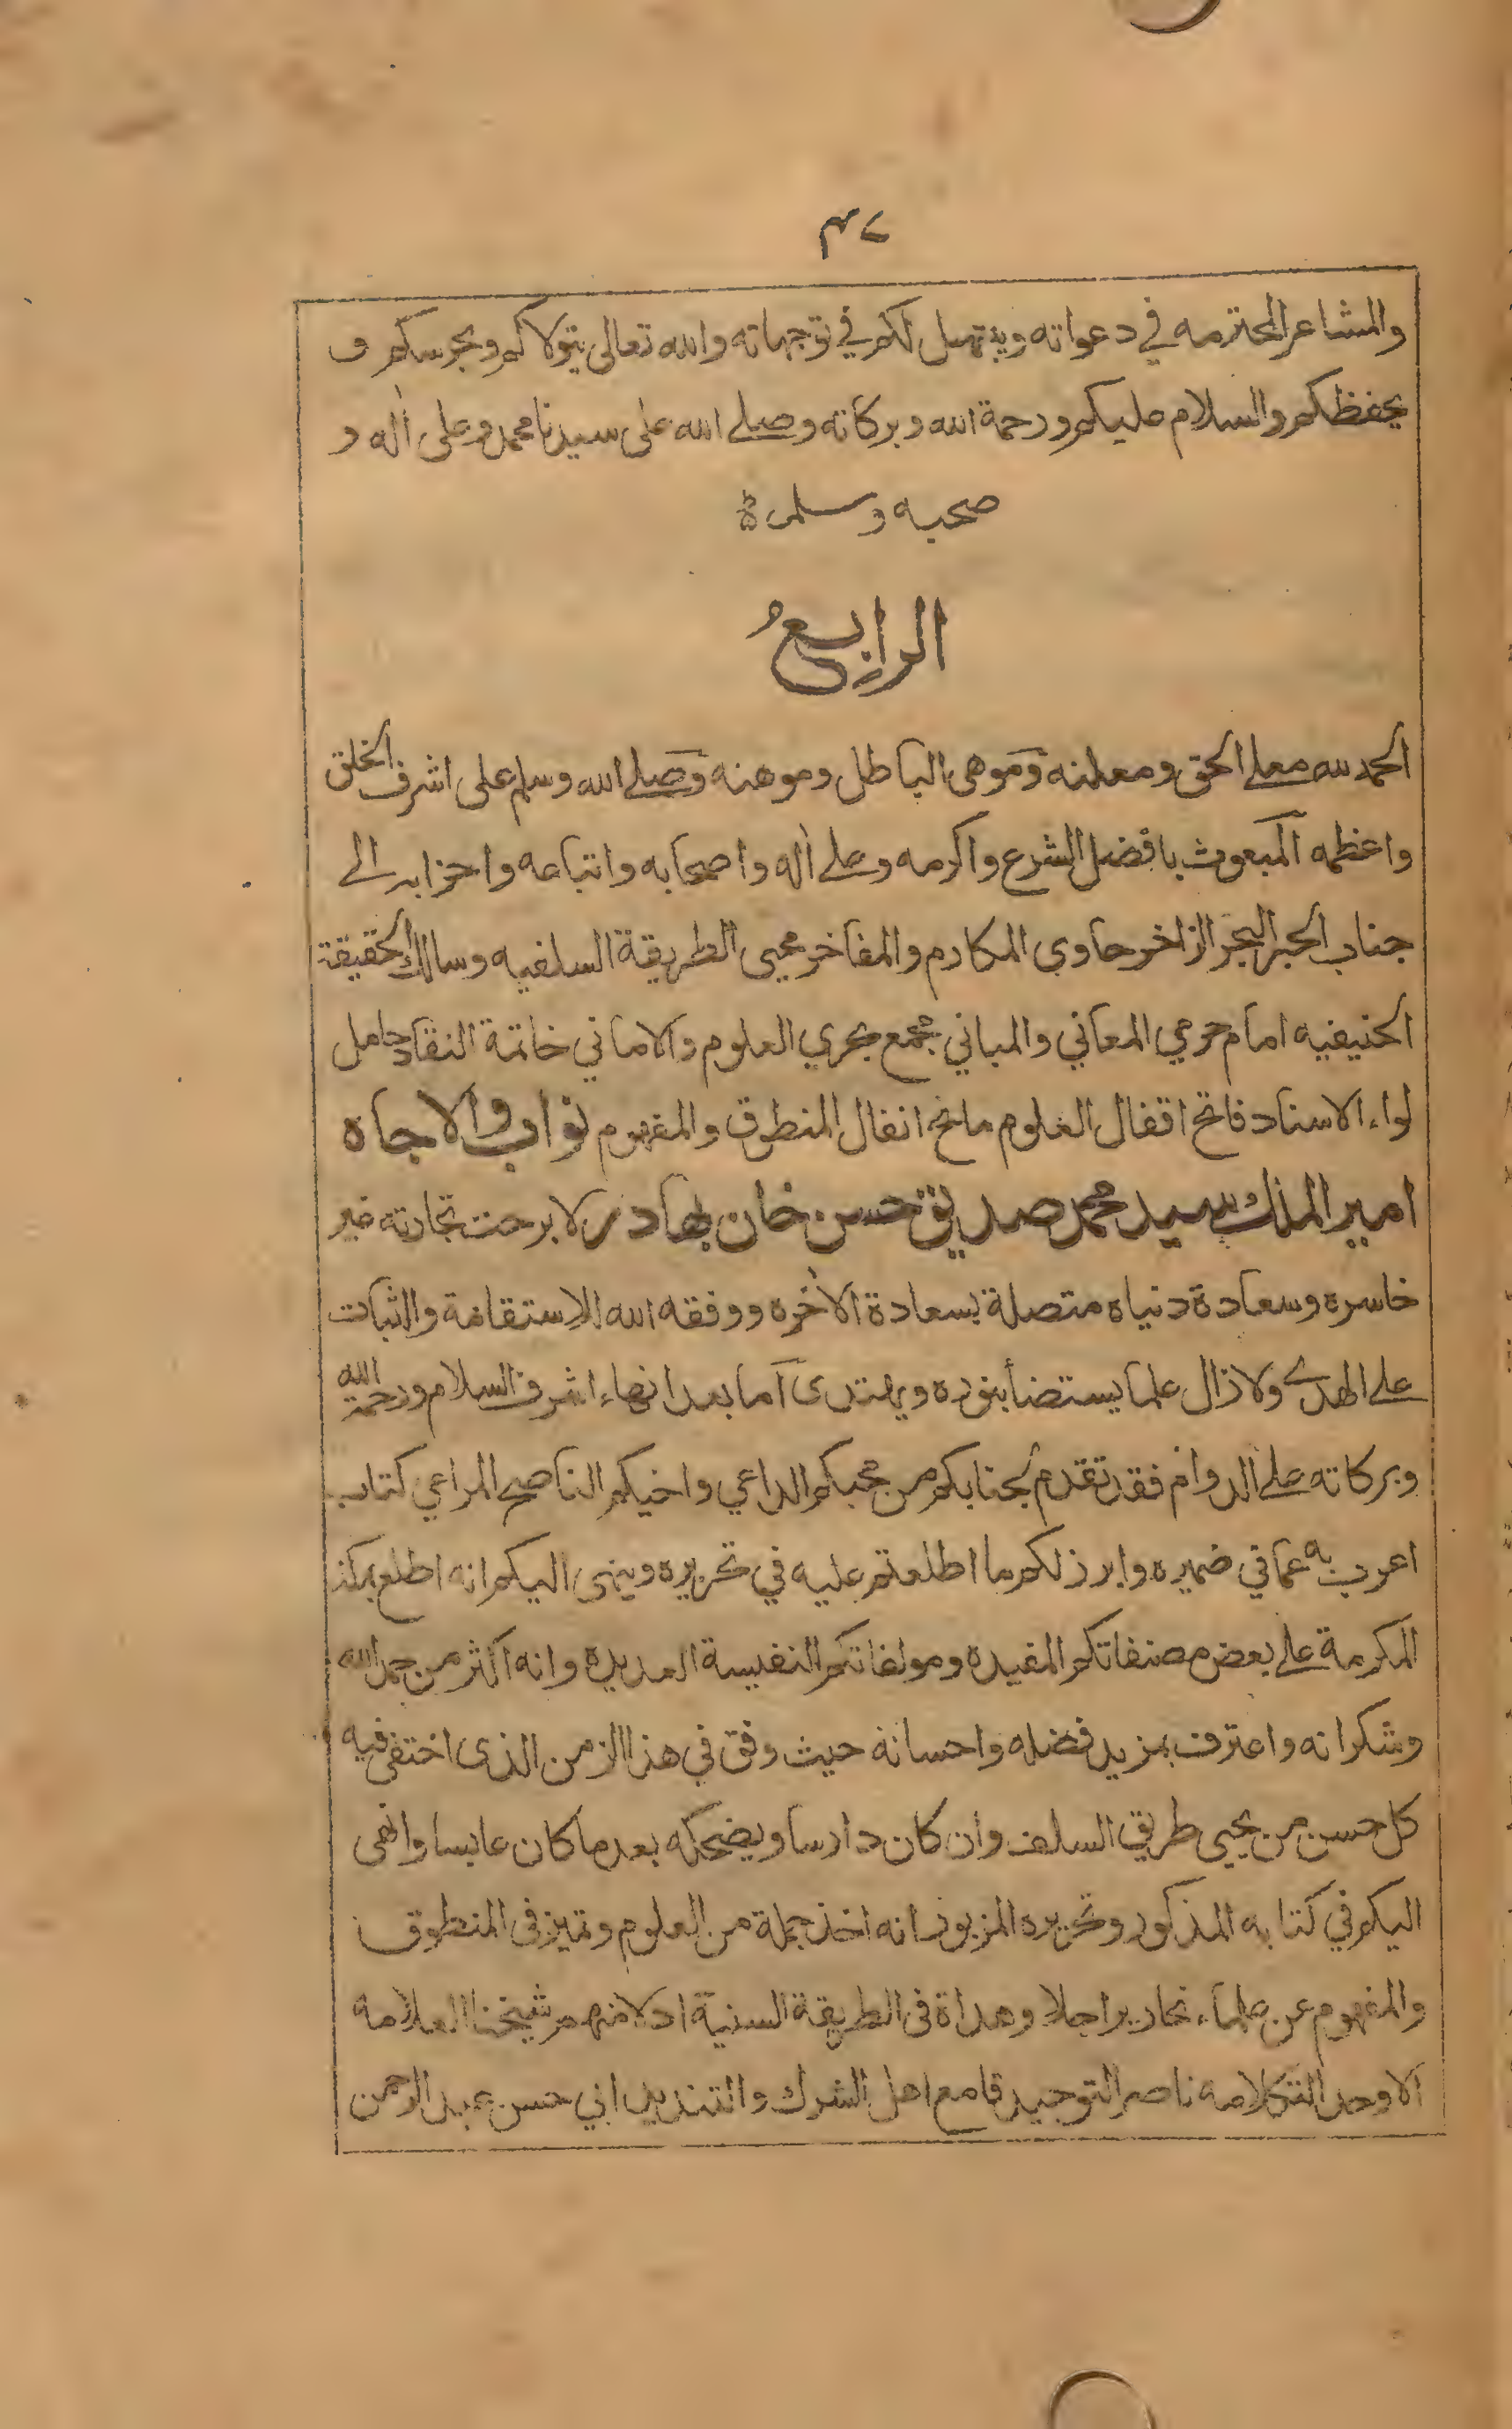 ٤٧
والمشاعر المحترمه في دعواته ويبتهل لكم في توجهاته والله تعالى يتولاكم ويحرسكم و
يحفظكم والسلام عليكم ورحمة الله وبركاته وصلے الله على سيدنا محمد وعلى اٰله و
صحبه وسلم
الرابعُ
الحمد لله معلے الحق ومعلنه وموهى الباطل وموهنه وصلے الله وسلم على اشرف الخلق
واعظمه المبعوث بافضل الشرع واكرمه وعلے اٰله واصحابه واتباعه واحزابه الے
جناب الحبر البحر الزاخر حاوي المكارم والمفاخر محيى الطريقة السلفيه وسالك الحقيقة
الحنيفيه امام حرمي المعاني والمباني مجمع بحري العلوم والاماني خاتمة النقاد حامل
لواء الاسناد فاتح اقفال العلوم مانح انفال المنطوق والمفهوم نواب والاجاه
امير الملك سيد محمد صديق حسن خان بهادر لا برحت تجارته غير
خاسره وسعادة دنياه متصلة بسعادة الاٰخره ووفقه الله للاستقامة والثبات
علے الهدے ولا زال علما يستضأ بنوره ويهتدى اما بعد انهاء اشرف السلام ورحمة الله
وبركاته علے الدوام فقد تقدم لجنابكم من محبكم الداعي واخيكم الناصح المراعي كتاب
اعرب به عما في ضميره وابرز لكم ما اطلعتم عليه في تحريره وينهى اليكم انه اطلع بمكة
المكرمة علے بعض مصنفاتكم المفيده ومولفاتكم النفيسة العديده وانه اكثر من حمد الله
وشكرانه واعترف بمزيد فضله واحسانه حيث وفق في هذا الزمن الذى اختفى فيه
كل حسن من يحيى طريق السلف وان كان دارسا ويضحكه بعد ما كان عابسا وانهى
اليكم في كتابه المذكور وتحريره المزبور انه اخذ جملة من العلوم وتميز فى المنطوق
والمفهوم عن علماء نحارير اجلا وهداة فى الطريقة السنية ادلا منهم شيخنا العلامة
الاوحد التكلامه ناصر التوحيد قامع اهل الشرك والتنديد ابي حسن عبد الرحمن